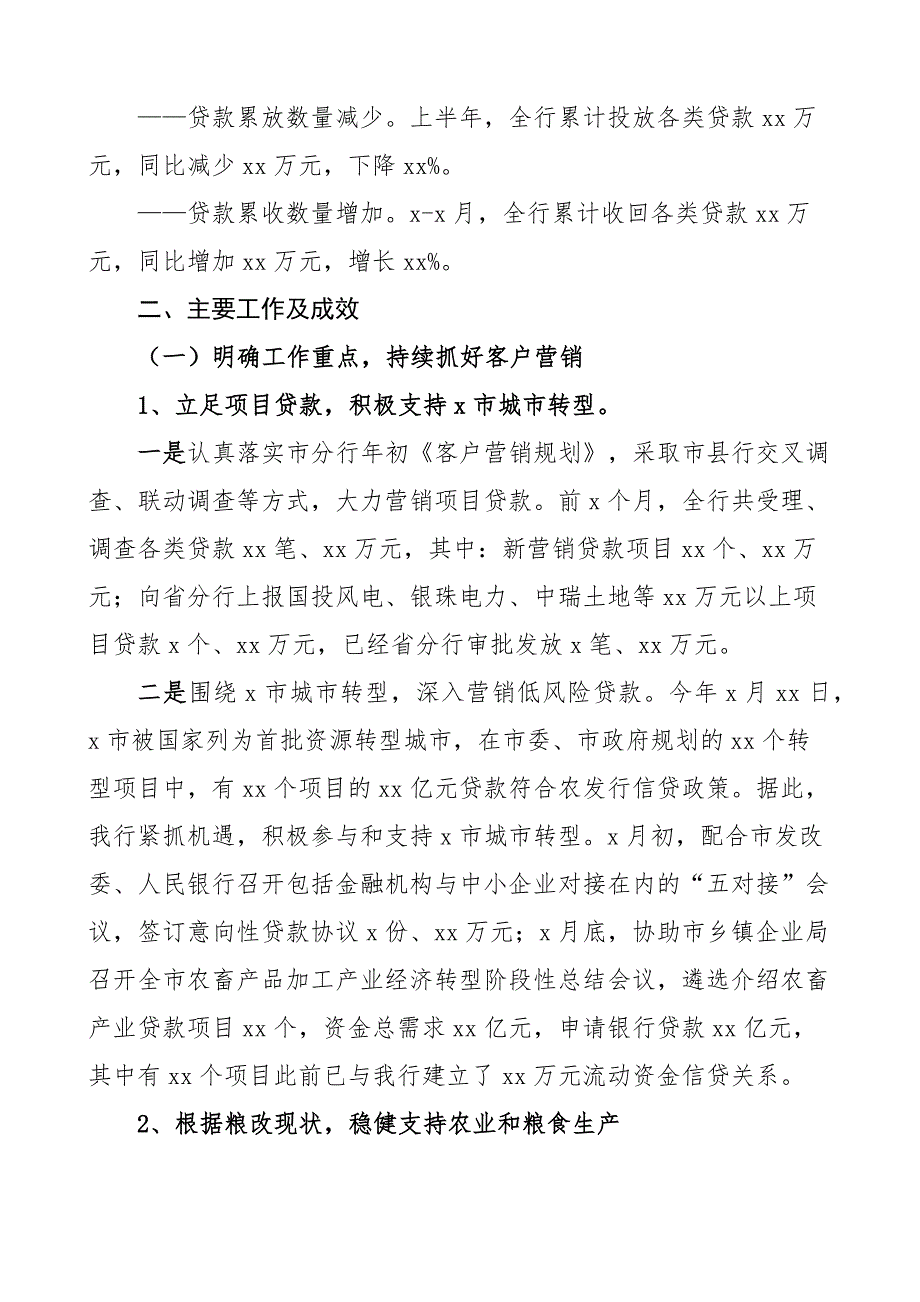 ——贷款累放数量减少。上半年，全行累计投放各类贷款 xx 万
元，同比减少 xx 万元，下降 xx%。
——贷款累收数量增加。x-x 月，全行累计收回各类贷款 xx 万
元，同比增加 xx 万元，增长 xx%。
二、主要工作及成效
（一）明确工作重点，持续抓好客户营销
1、立足项目贷款，积极支持 x 市城市转型。
一是认真落实市分行年初《客户营销规划》，采取市县行交叉调
查、联动调查等方式，大力营销项目贷款。前 x 个月，全行共受理、
调查各类贷款 xx 笔、xx 万元，其中：新营销贷款项目 xx 个、xx 万
元；向省分行上报国投风电、银珠电力、中瑞土地等 xx 万元以上项
目贷款 x 个、xx 万元，已经省分行审批发放 x 笔、xx 万元。
二是围绕 x 市城市转型，深入营销低风险贷款。今年 x 月 xx 日，
x 市被国家列为首批资源转型城市，在市委、市政府规划的 xx 个转
型项目中，有 xx 个项目的 xx 亿元贷款符合农发行信贷政策。据此，
我行紧抓机遇，积极参与和支持 x 市城市转型。x 月初，配合市发改
委、人民银行召开包括金融机构与中小企业对接在内的“五对接”会
议，签订意向性贷款协议 x 份、xx 万元；x 月底，协助市乡镇企业局
召开全市农畜产品加工产业经济转型阶段性总结会议，遴选介绍农畜
产业贷款项目 xx 个，资金总需求 xx 亿元，申请银行贷款 xx 亿元，
其中有 xx 个项目此前已与我行建立了 xx 万元流动资金信贷关系。
2、根据粮改现状，稳健支持农业和粮食生产